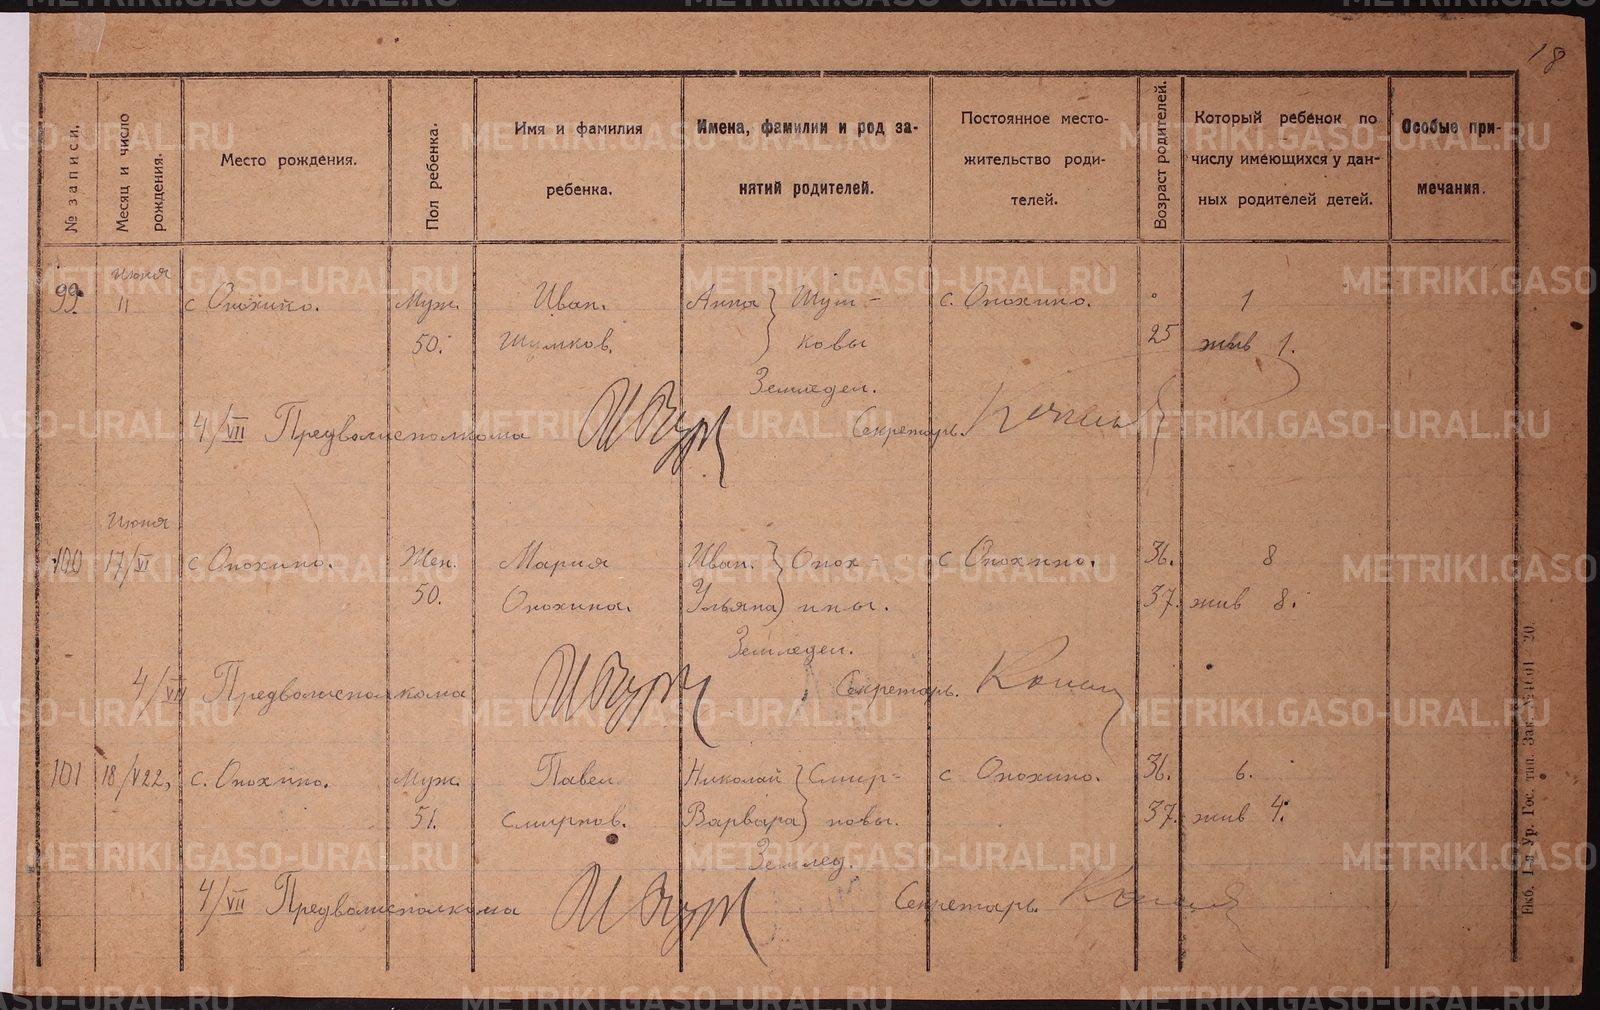 18
№ записи.
Месяц и число рождения.
Место рождения.
Пол ребенка.
Имя и фамилия
ребенка.
Имена, фамилии и род за-
нятий родителей.
Постоянное место-
жительство роди-
телей.
Возраст родителей.
Который ребенок по
числу имеющихся у дан-
ных родителей детей.
Особые при-
мечания.
Июня
99. 11 с. Опохино. Муж. Иван. Анна } Шум- с. Опохино. 1
50. Шумков. ковы 25 жив 1.
Земледел.
4/VII Предволисполкома Секретарь.
Июня
100 17/VI с Опохино. Жен. Мария Иван. } Опох- с Опохино. 36. 8
50. Опохина. Ульяна } ины. 37. жив 8.
Земледел.
4/VII Предволисполкома Секретарь.
101 18/V 22, с. Опохино. Муж. Павел Николай } Смир- с Опохино. 36. 6.
51. Смирнов. Варвара } новы. 37. жив 4.
Землед.
4/VII Предволисполкома Секретарь.
Екб. 1-я Ур. Гос. тип. Зак. № 4601—20.
METRIKI.GASO-URAL.RU